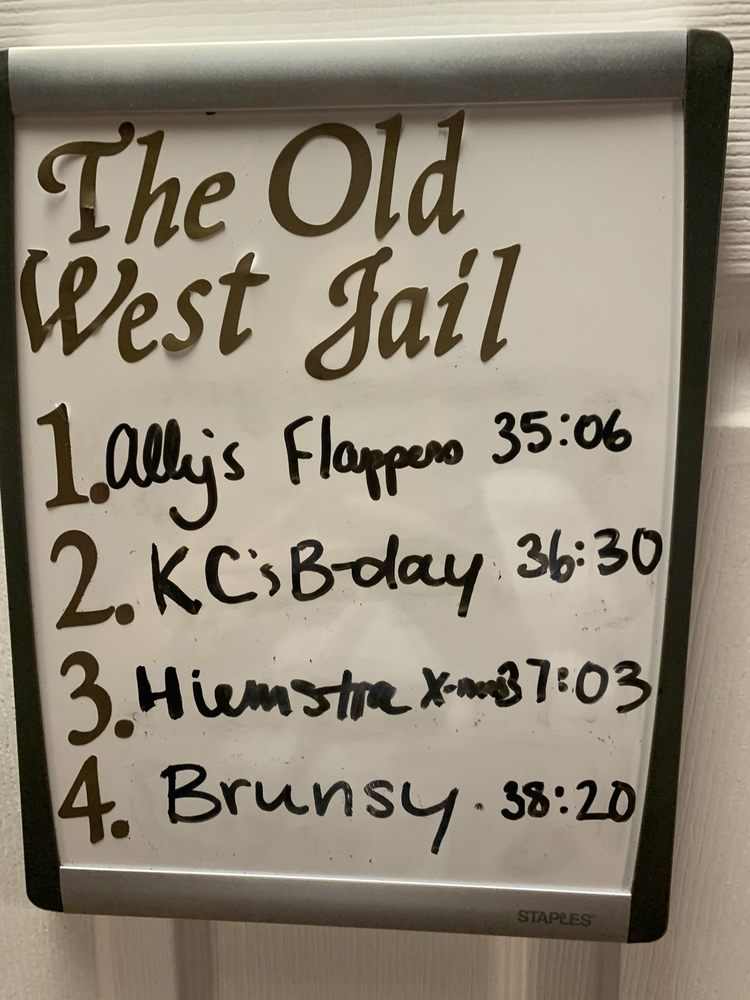 The Old
West Jail
1. Ally's Flappers 35:06
2. KC's B-day 36:30
3. Hiemstra X-mas 37:03
4. Brunsy 38:20
STAPLES